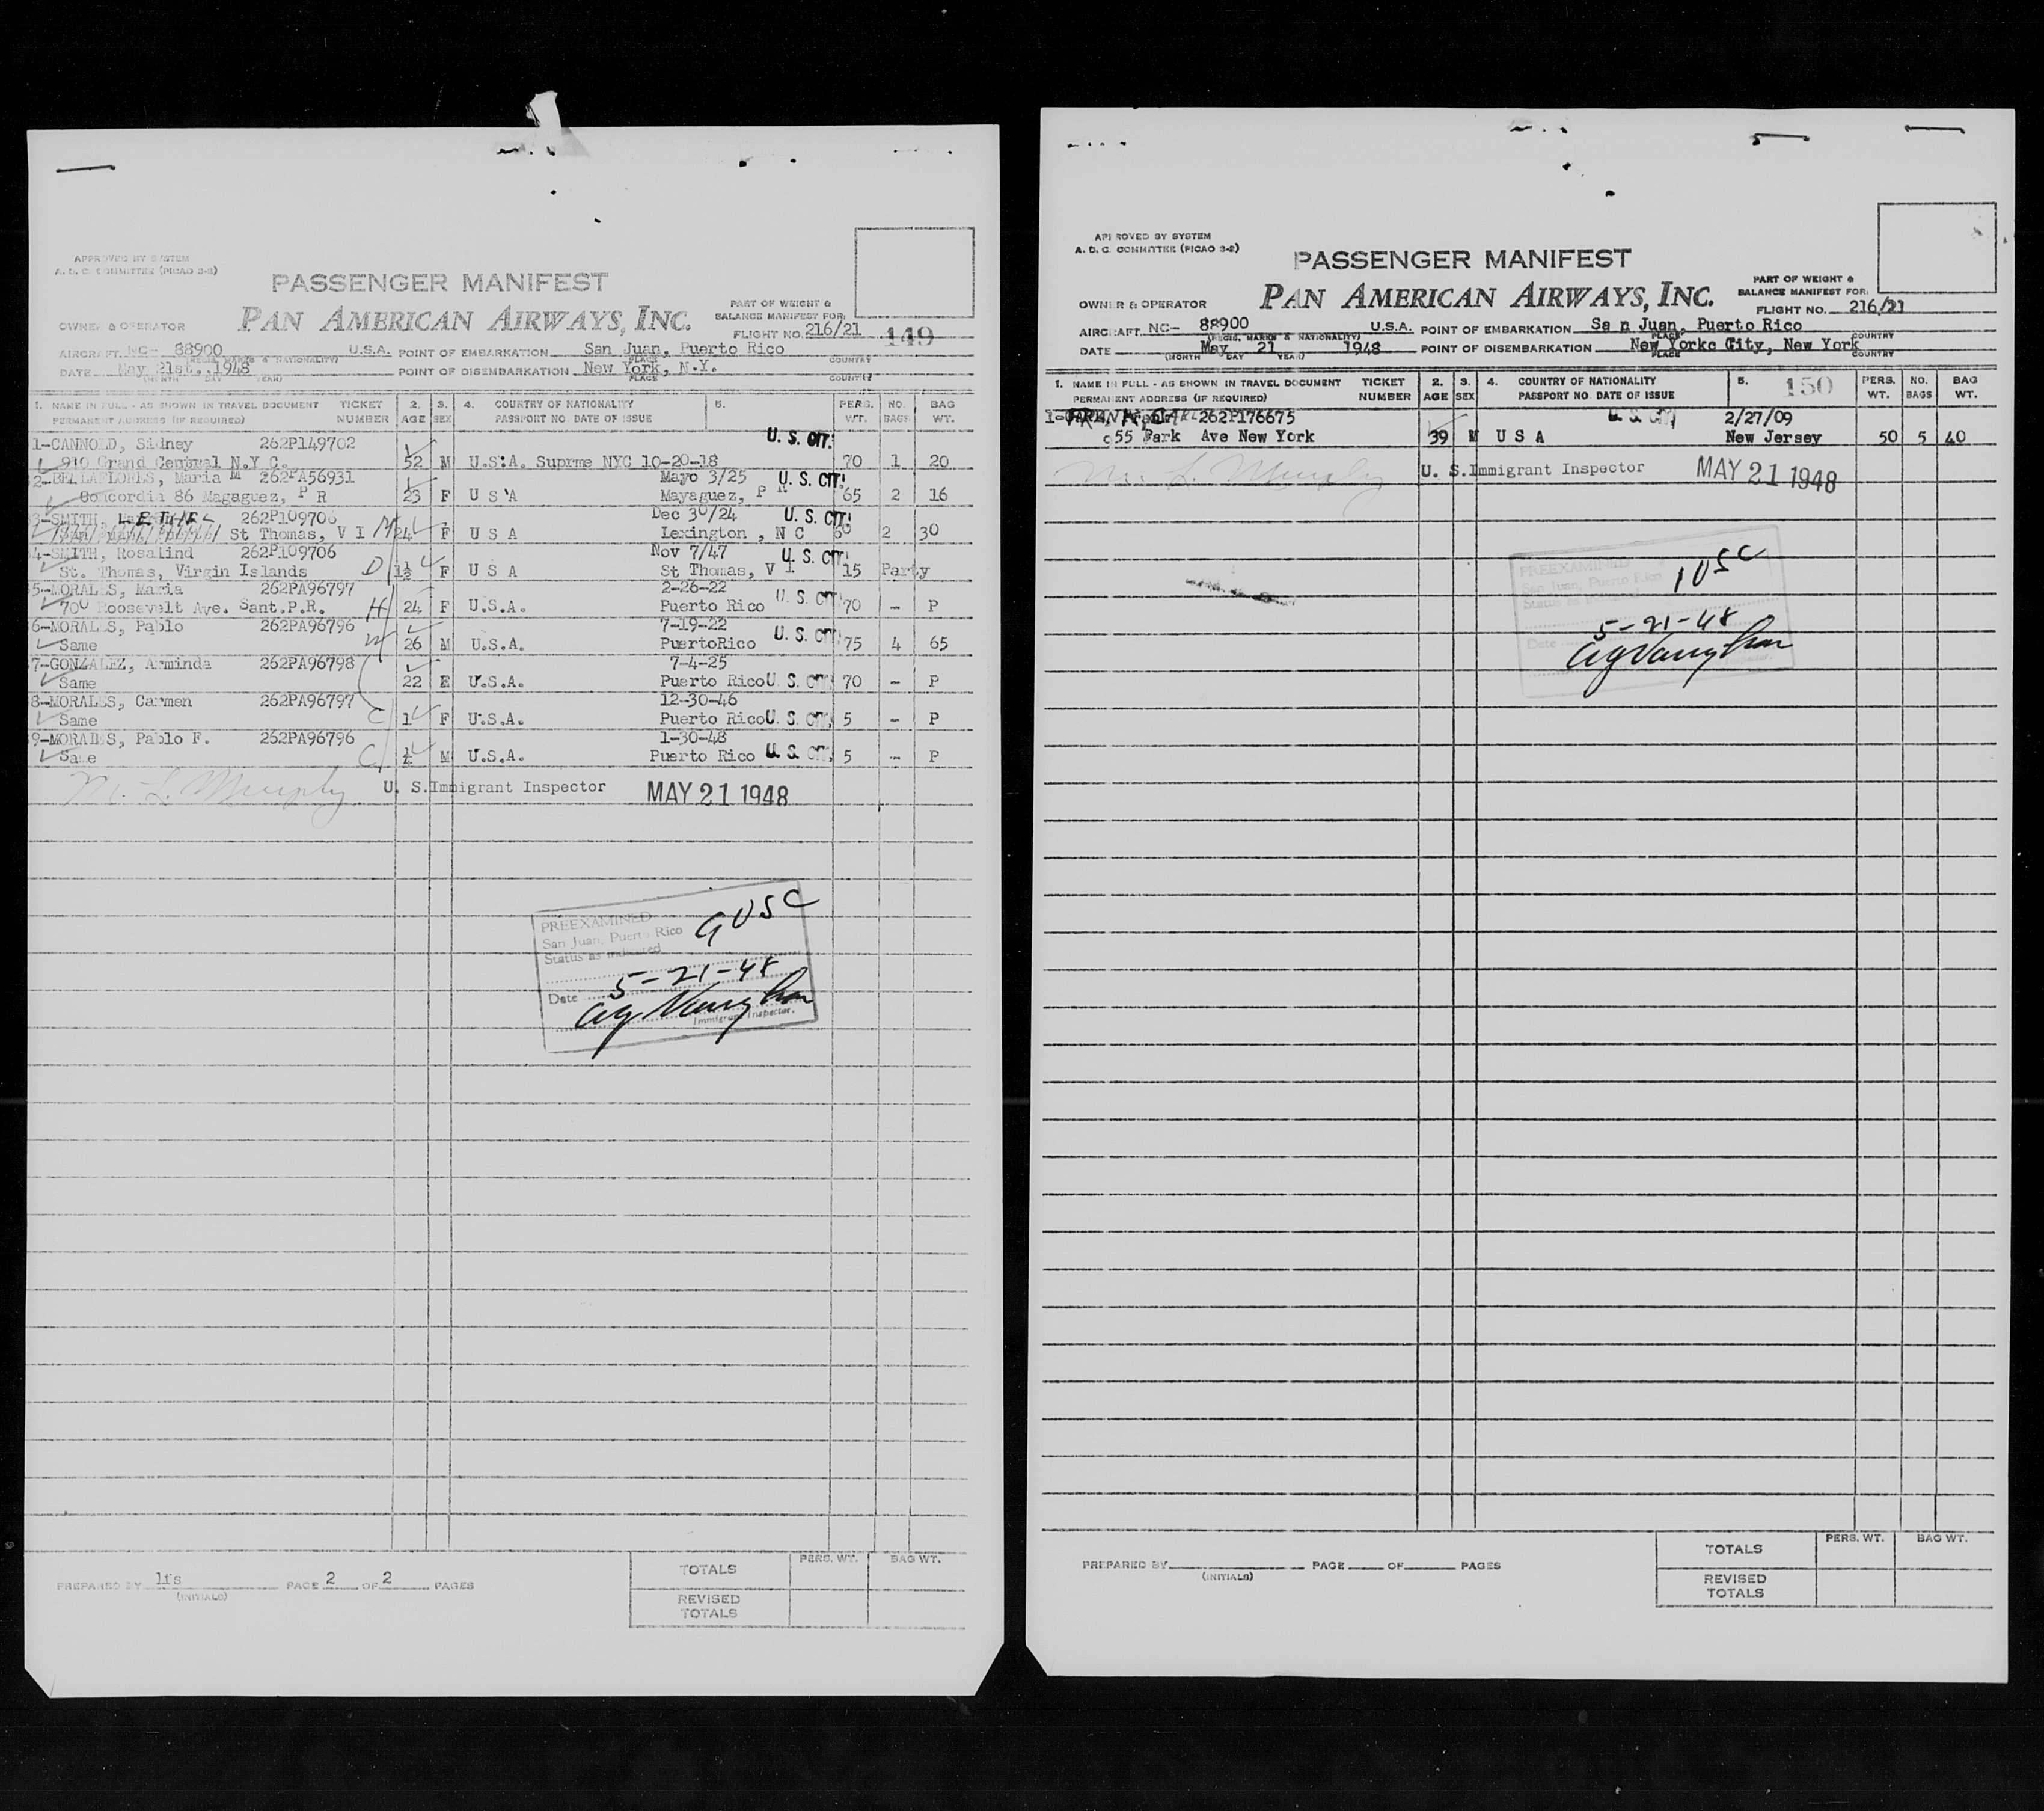 APPROVED BY SYSTEM
A. D. C. COMMITTEE (PICAO S-2)
PASSENGER MANIFEST
PART OF WEIGHT &
BALANCE MANIFEST FOR:
OWNER & OPERATOR PAN AMERICAN AIRWAYS, INC. FLIGHT NO. 216/21 149
AIRCRAFT NC- 88900 U.S.A. POINT OF EMBARKATION San Juan, Puerto Rico
(REGIS. MARKS & NATIONALITY) PLACE COUNTRY
DATE May 21st., 1948 POINT OF DISEMBARKATION New York, N.Y.
(MONTH DAY YEAR) PLACE COUNTRY
1. NAME IN FULL - AS SHOWN IN TRAVEL DOCUMENT TICKET 2. 3. 4. COUNTRY OF NATIONALITY 5. PERS. NO. BAG
PERMANENT ADDRESS (IF REQUIRED) NUMBER AGE SEX PASSPORT NO. DATE OF ISSUE WT. BAGS WT.
1-CANNOLD, Sidney 262P149702 U. S. CIT.
910 Grand Central N.Y.C. 52 M U.S.A. Suprme NYC 10-20-18 70 1 20
2-BELLAFLORES, Maria M 262PA56931 Mayo 3/25 U. S. CIT.
Concordia 86 Magaguez, P R 23 F U S A Mayaguez, P R 65 2 16
3-SMITH, LETHEL 262P109706 Dec 30/24 U. S. CIT.
St Thomas, V I M 24 F U S A Lexington , N C 60 2 30
4-SMITH, Rosalind 262P109706 Nov 7/47 U. S. CIT.
St. Thomas, Virgin Islands D F U S A St Thomas, V I 15 Party
5-MORALES, Maria 262PA96797 2-26-22
700 Roosevelt Ave. Sant.P.R. H 24 F U.S.A. Puerto Rico U. S. CIT. 70 - P
6-MORALES, Pablo 262PA96796 7-19-22
Same W 26 M U.S.A. PuertoRico U. S. CIT. 75 4 65
7-GONZALEZ, Arminda 262PA96798 7-4-25
Same 22 F U.S.A. Puerto Rico U. S. CIT. 70 - P
8-MORALES, Carmen 262PA96797 12-30-46
Same C 1 F U.S.A. Puerto Rico U. S. CIT. 5 - P
9-MORALES, Pablo F. 262PA96796 1-30-48
Same C M U.S.A. Puerto Rico U. S. CIT. 5 - P
M. L. Murphy U. S. Immigrant Inspector MAY 21 1948
PREEXAMINED 9 USC
San Juan, Puerto Rico
Status as indicated
Date 5-21-48
Immigrant Inspector.
PREPARED BY lfs PAGE 2 OF 2 PAGES
(INITIALS)
PERS. WT. BAG WT.
TOTALS
REVISED
TOTALS
APPROVED BY SYSTEM
A. D. C. COMMITTEE (PICAO S-2)
PASSENGER MANIFEST
PART OF WEIGHT &
BALANCE MANIFEST FOR:
OWNER & OPERATOR PAN AMERICAN AIRWAYS, INC. FLIGHT NO. 216/21
AIRCRAFT NC- 88900 U.S.A. POINT OF EMBARKATION Sa n Juan, Puerto Rico
(REGIS. MARKS & NATIONALITY) PLACE COUNTRY
DATE May 21 1948 POINT OF DISEMBARKATION New Yorkc City, New York
(MONTH DAY YEAR) PLACE COUNTRY
1. NAME IN FULL - AS SHOWN IN TRAVEL DOCUMENT TICKET 2. 3. 4. COUNTRY OF NATIONALITY 5. 150 PERS. NO. BAG
PERMANENT ADDRESS (IF REQUIRED) NUMBER AGE SEX PASSPORT NO. DATE OF ISSUE WT. BAGS WT.
262P176675 U. S. CIT. 2/27/09
55 Park Ave New York 39 M U S A New Jersey 50 5 40
M. L. Murphy U. S. Immigrant Inspector MAY 21 1948
PREEXAMINED 1 USC
San Juan, Puerto Rico
Status as indicated
Date 5-21-48
Inspector.
PREPARED BY PAGE OF PAGES
(INITIALS)
PERS. WT. BAG WT.
TOTALS
REVISED
TOTALS